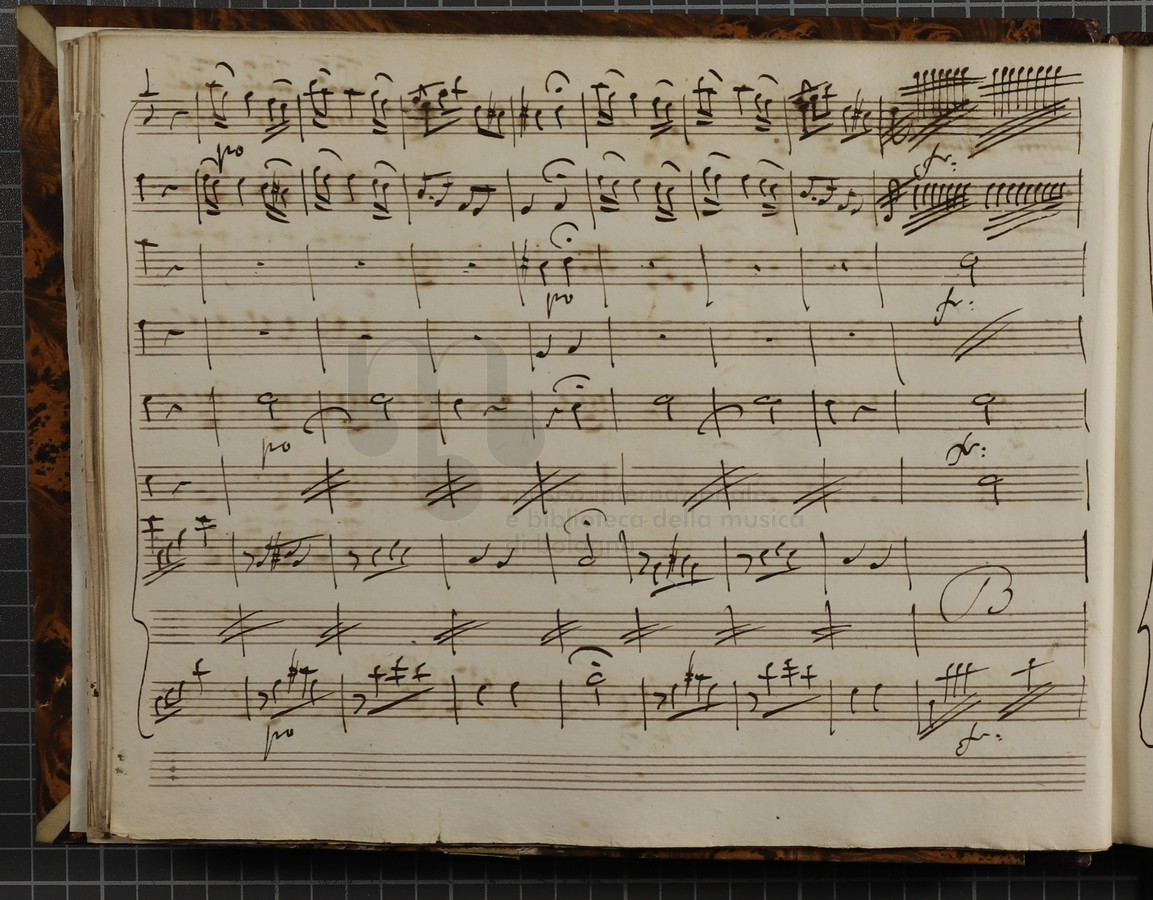 po
fr:
po
fr:
po
fr:
museo internazionale
e biblioteca della musica
di bologna
B
po
fr: